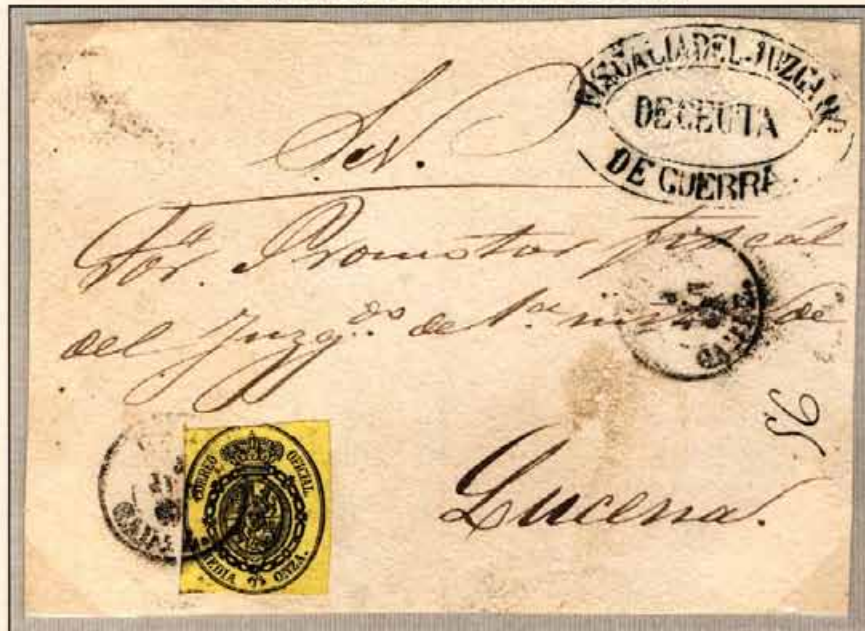 FISCALIA DEL JUZGADO
DE CEUTA
DE GUERRA
S.N.
Sor. Promotor fiscal
del Juzgdo de 1a inst de
56
Lucena.
CORREO OFICIAL
MEDIA ONZA.
CADIZ